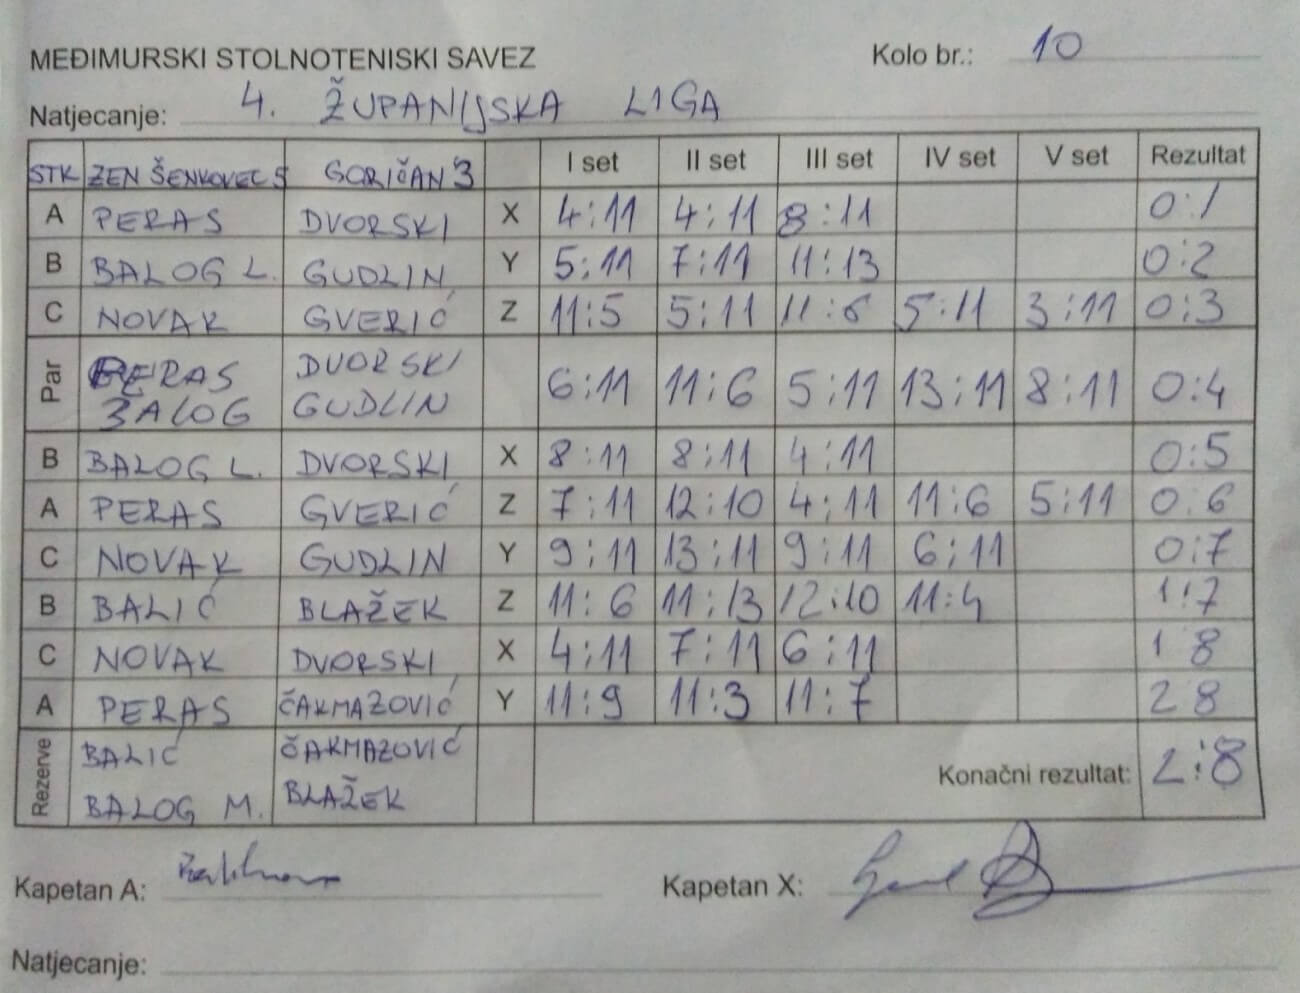 MEĐIMURSKI STOLNOTENISKI SAVEZ Kolo br.: 10
Natjecanje: 4. ŽUPANIJSKA LIGA
STK ZEN ŠENKOVEC 5 GORIČAN 3 I set II set III set IV set V set Rezultat
A PERAS DVORSKI X 4:11 4:11 8:11 0:1
B BALOG L. GUDLIN Y 5:11 7:11 11:13 0:2
C NOVAK GVERIĆ Z 11:5 5:11 11:6 5:11 3:11 0:3
Par PERAS BALOG DVORSKI GUDLIN 6:11 11:6 5:11 13:11 8:11 0:4
B BALOG L. DVORSKI X 8:11 8:11 4:11 0:5
A PERAS GVERIĆ Z 7:11 12:10 4:11 11:6 5:11 0:6
C NOVAK GUDLIN Y 9:11 13:11 9:11 6:11 0:7
B BALIĆ BLAŽEK Z 11:6 11:13 12:10 11:4 1:7
C NOVAK DVORSKI X 4:11 7:11 6:11 1 8
A PERAS ČAKMAZOVIĆ Y 11:9 11:3 11:7 2 8
Rezerve BALIĆ ČAKMAZOVIĆ
BALOG M. BLAŽEK
Konačni rezultat: 2:8
Kapetan A: Kapetan X:
Natjecanje: